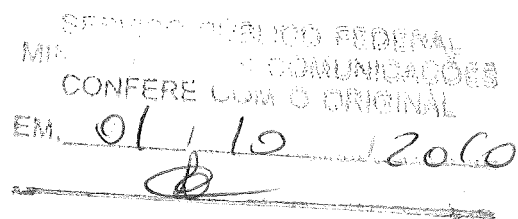 SERVIÇO PÚBLICO FEDERAL
COMUNICAÇÕES
CONFERE COM O ORIGINAL
EM, 01 / 10 / 2010